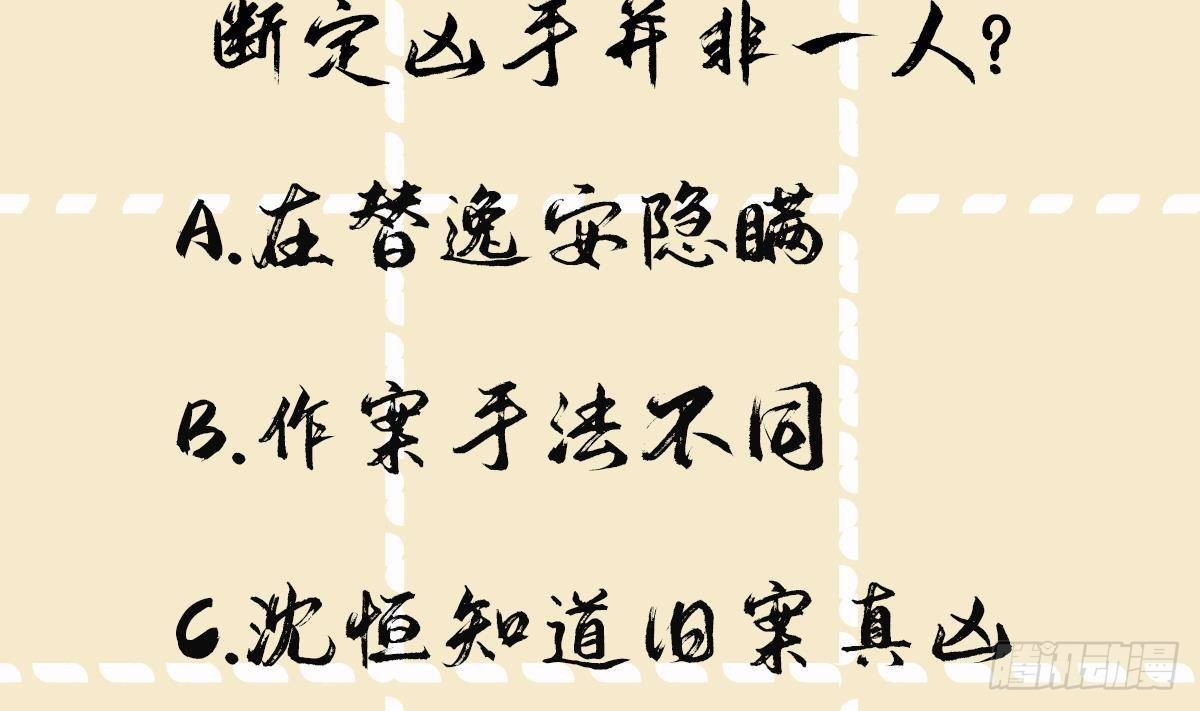 断定凶手并非一人?
A.在替逸安隐瞒
B.作案手法不同
C.沈恒知道旧案真凶
腾讯动漫